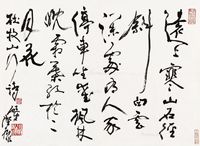 遠上寒山石徑
斜白雲
深處有人家
停車坐愛楓林
晚霜葉紅於二
月花
杜牧山行詩